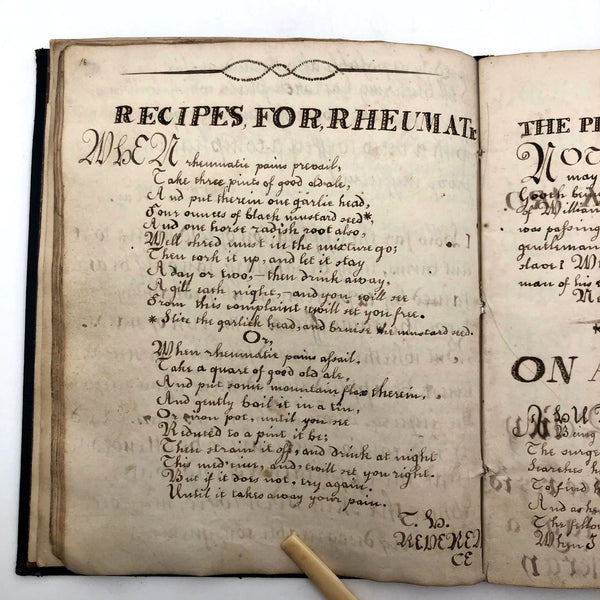 RECIPES, FOR, RHEUMATC
WHEN rheumatic pains prevail,
Take three pints of good old ale,
And put therein one garlic head,
Four ounces of black mustard seed*,
And one horse radish root also,
Well shred must in the mixture go;
Then cork it up, and let it stay
A day or two,—then drink away,
A gill each night,—and you will see
From this complaint will set you free.
* Slice the garlick head, and bruise the mustard seed.
Or,
When rheumatic pains assail,
Take a quart of good old ale,
And put some mountain flax therein,
And gently boil it in a tin,
Or iron pot, until you see
Reduced to a pint it be;
Then strain it off, and drink at night
This med'cine, and, will set you right.
But if it does not, try again.
Until it takes away your pain.
T. W.
REVEREN
CE
THE P
NOT
may
Gooch bein
of William
was passing
gentleman
slave! W
man of his
ON A
Being
The surge
Searches h
To find
And as he
The fellow
When I